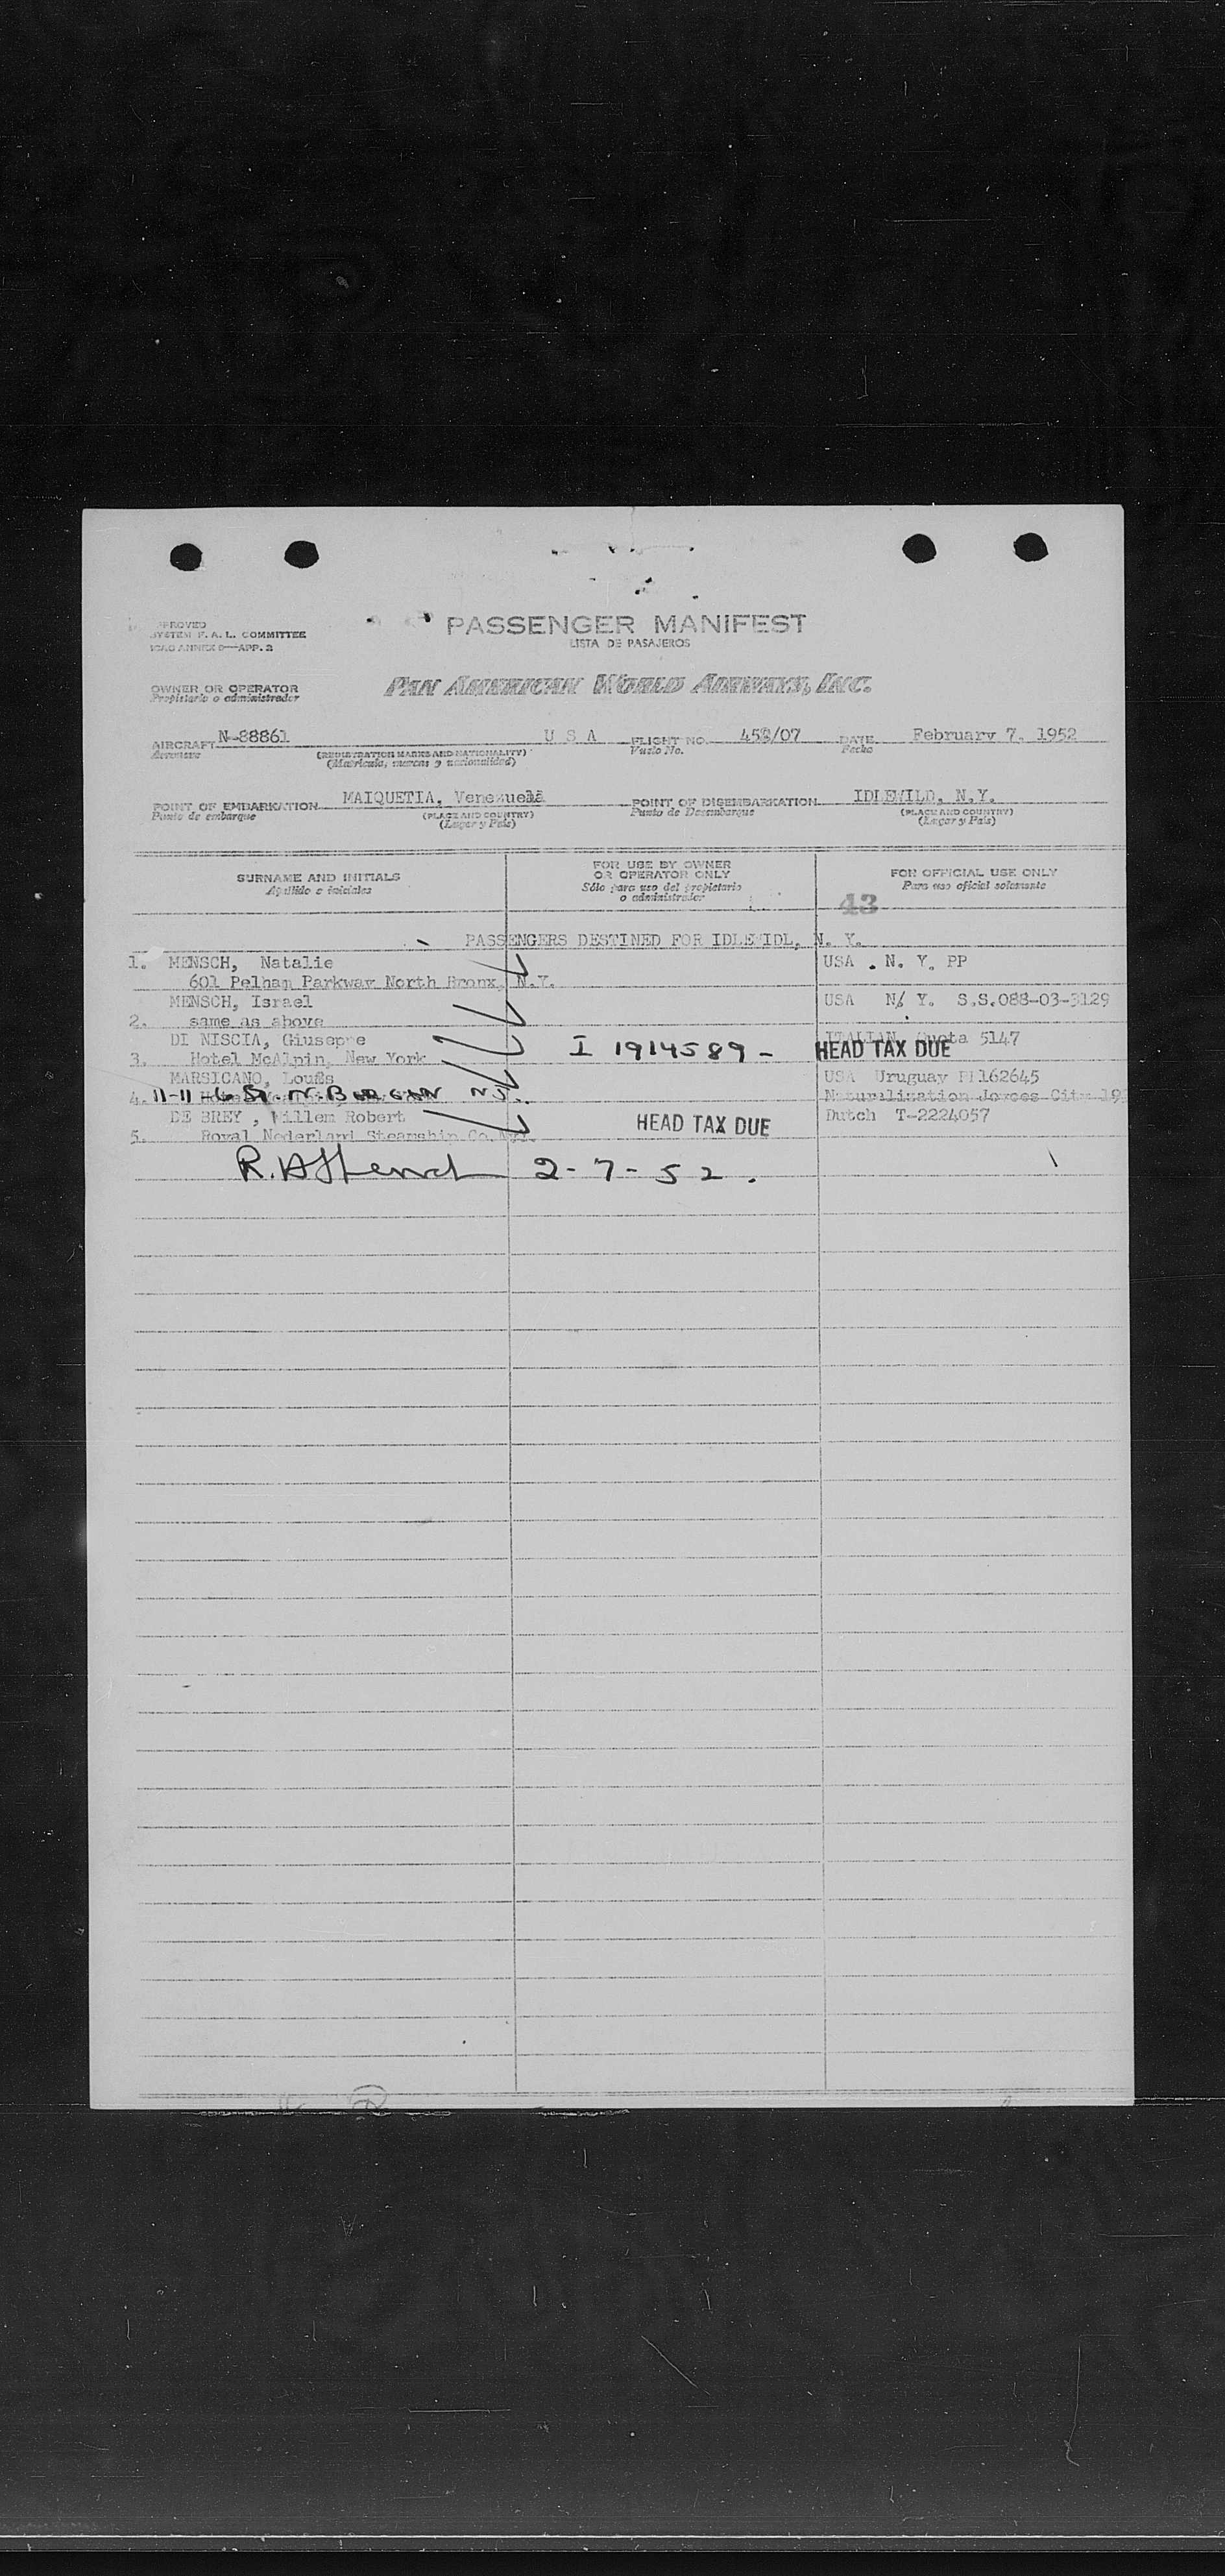 PASSENGER MANIFEST
LISTA DE PASAJEROS
APPROVED
SYSTEM F. A. L. COMMITTEE
ICAO ANNEX 9—APP. 2
OWNER OR OPERATOR
Propietario o administrador
PAN AMERICAN WORLD AIRWAYS, INC.
AIRCRAFT N-88861 U S A FLIGHT NO. 452/07 DATE February 7, 1952
Aeronave (REGISTRATION MARKS AND NATIONALITY) Vuelo No. Fecha
(Matricula, marcas y nacionalidad)
POINT OF EMBARKATION MAIQUETIA, Venezuela POINT OF DISEMBARKATION IDLEWILD, N.Y.
Punto de embarque (PLACE AND COUNTRY) Punto de Desembarque (PLACE AND COUNTRY)
(Lugar y País) (Lugar y País)
SURNAME AND INITIALS
Apellido e iniciales
FOR USE BY OWNER
OR OPERATOR ONLY
Sólo para uso del propietario
o administrador
FOR OFFICIAL USE ONLY
Para uso oficial solamente
43
PASSENGERS DESTINED FOR IDLEWIDL, N. Y.
1. MENSCH, Natalie USA . N. Y. PP
601 Pelham Parkway North Bronx, N.Y.
MENSCH, Israel USA N/ Y. S.S.088-03-3129
2. same as above
DI NISCIA, Giuseppe ITALIAN Quota 5147
3. Hotel McAlpin, New York I 1914589 - HEAD TAX DUE
MARSICANO, Louis USA Uruguay PP162645
4. 11-11 6 St N. BERGEN NJ. Naturalization City 19
DE BREY , Willem Robert Dutch T-2224057
5. Royal Nederland Steamship Co. HEAD TAX DUE
2-7-52.